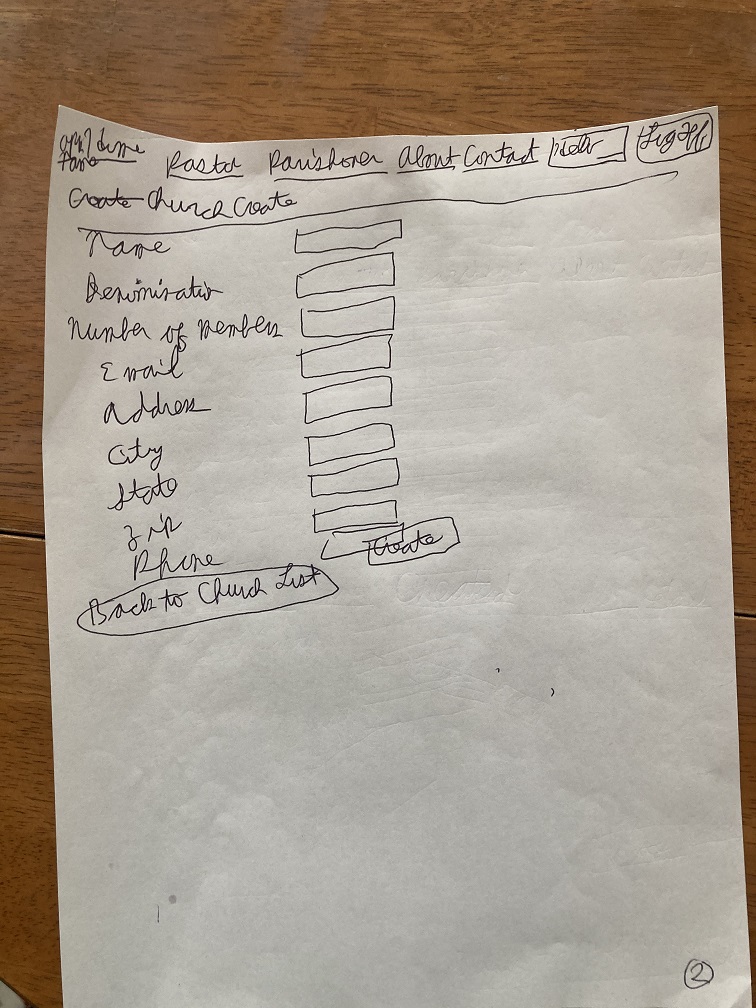 Pastor Parishoner About Contact Log Off
Church Create
Name
Denomination
Number of members
Email
Address
City
State
Zip
Phone
Create
Back to Church List
2